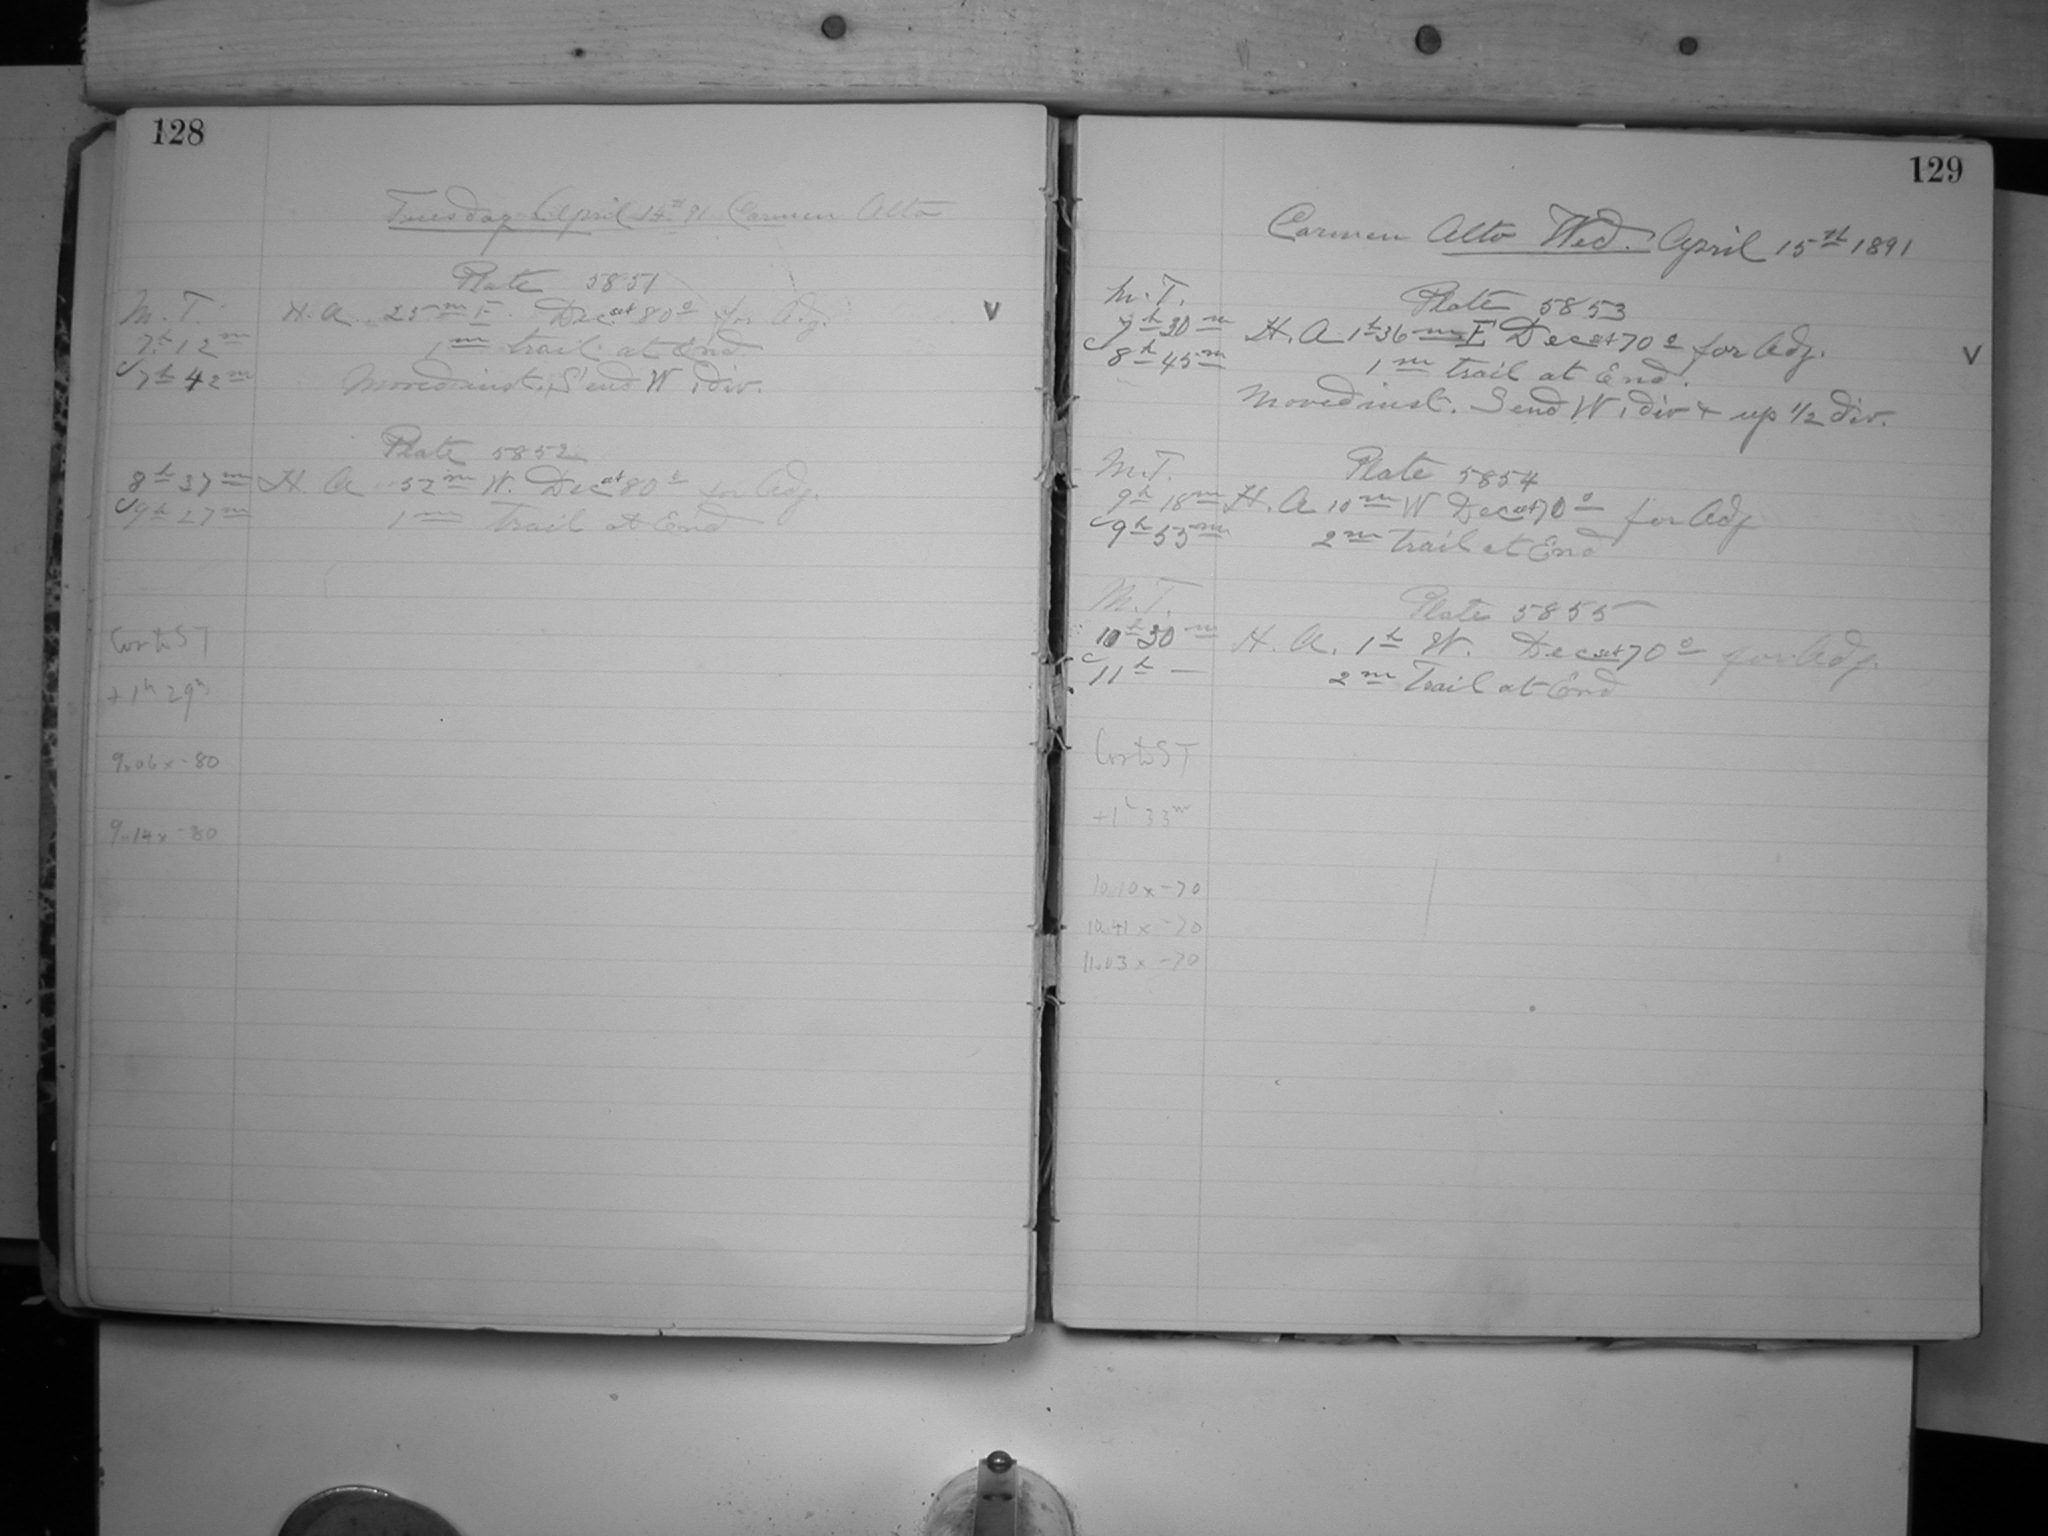 128
Tuesday April 14th 91 Carmen Alto
Plate 5851
M. T. H. A. 25m E. Dec set 80° for Adj. V
7h 12m 1m trail at End
7h 42m Moved inst. S end W 1 div.
Plate 5852
8h 37m H. A. 52m W. Dec set 80° for Adj.
9h 27m 1m Trail at End
Cor to ST
+1h 29m
9.06 x -80
9.14 x -80
129
Carmen Alto Wed. April 15th 1891
M. T. Plate 5853
7h 30m H. A 1h 36m E Dec set 70° for Adj. V
8h 45m 1m trail at End.
Moved inst. S end W 1 div & up 1/2 div.
M. T. Plate 5854
9h 18m H. A 10m W Dec set 70° for Adj
9h 53m 2m trail at End
M. T. Plate 5855
10h 30m H. A. 1h W. Dec set 70° for Adj.
11h — 2m Trail at End
Cor to ST
+1h 33m
10.10 x -70
10.41 x -70
11.03 x -70